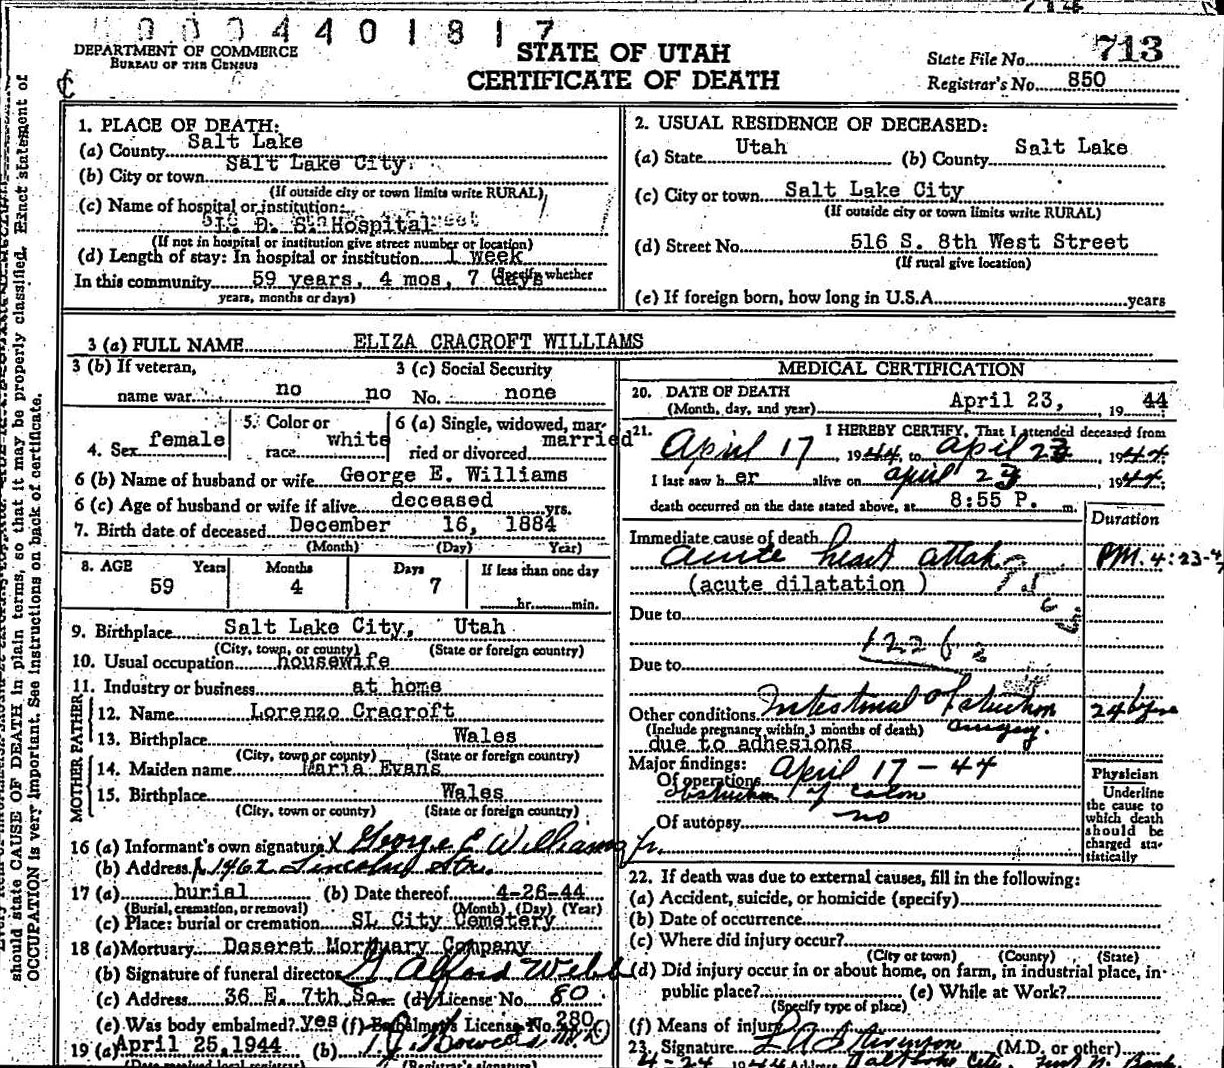 0004401817
DEPARTMENT OF COMMERCE
BUREAU OF THE CENSUS
STATE OF UTAH
CERTIFICATE OF DEATH
State File No. 713
Registrar's No. 850
should state CAUSE OF DEATH in plain terms, so that it may be properly classified. Exact statement of
OCCUPATION is very important. See instructions on back of certificate.
1. PLACE OF DEATH:
(a) County Salt Lake
(b) City or town Salt Lake City
(If outside city or town limits write RURAL)
(c) Name of hospital or institution:
L. D. S. Hospital
(If not in hospital or institution give street number or location)
(d) Length of stay: In hospital or institution 1 week
(Specify whether
In this community 59 years, 4 mos, 7 days
years, months or days)
2. USUAL RESIDENCE OF DECEASED:
(a) State Utah (b) County Salt Lake
(c) City or town Salt Lake City
(If outside city or town limits write RURAL)
(d) Street No. 516 S. 8th West Street
(If rural give location)
(e) If foreign born, how long in U.S.A. years
3 (a) FULL NAME ELIZA CRACROFT WILLIAMS
3 (b) If veteran,
name war no no
3 (c) Social Security
No. none
4. Sex female
5. Color or
race white
6 (a) Single, widowed, mar-
ried or divorced married
6 (b) Name of husband or wife George E. Williams
6 (c) Age of husband or wife if alive deceased yrs.
7. Birth date of deceased December 16, 1884
(Month) (Day) Year)
8. AGE Years Months Days If less than one day
59 4 7 hr. min.
9. Birthplace Salt Lake City, Utah
(City, town, or county) (State or foreign country)
10. Usual occupation housewife
11. Industry or business at home
FATHER
12. Name Lorenzo Cracroft
13. Birthplace Wales
(City, town or county) (State or foreign country)
MOTHER
14. Maiden name Maria Evans
15. Birthplace Wales
(City, town or county) (State or foreign country)
16 (a) Informant's own signature X George E Williams Jr.
(b) Address 1962 Lincoln Str.
17 (a) burial (b) Date thereof 4-26-44
(Burial, cremation, or removal) (Month) (Day) (Year)
(c) Place: burial or cremation SL City Cemetery
18 (a) Mortuary Deseret Mortuary Company
(b) Signature of funeral director
(c) Address 36 E. 7th So. (d) License No. 80
(e) Was body embalmed? yes (f) Embalmer's License No. 280
19 (a) April 25, 1944 (b)
(Date received local registrar) (Registrar's signature)
MEDICAL CERTIFICATION
20. DATE OF DEATH
(Month, day, and year) April 23, 19 44
21. I HEREBY CERTIFY, That I attended deceased from
April 17, 1944, to April 23, 1944
I last saw h er alive on April 23, 1944
death occurred on the date stated above, at 8:55 P. m.
Duration
Immediate cause of death
acute heart attak PM. 4:23-4
(acute dilatation )
Due to
122 b
Due to
Other conditions Intestinal Obstruction
(Include pregnancy within 3 months of death) surgery.
due to adhesions
Major findings:
Of operations April 17 - 44
Obstruction of colon
Of autopsy no
Physician
Underline
the cause to
which death
should be
charged sta-
tistically
22. If death was due to external causes, fill in the following:
(a) Accident, suicide, or homicide (specify)
(b) Date of occurrence
(c) Where did injury occur?
(City or town) (County) (State)
(d) Did injury occur in or about home, on farm, in industrial place, in
public place? (e) While at Work?
(Specify type of place)
(f) Means of injury
23. Signature (M.D. or other)
4-24 1944 Address Salt Lake City,